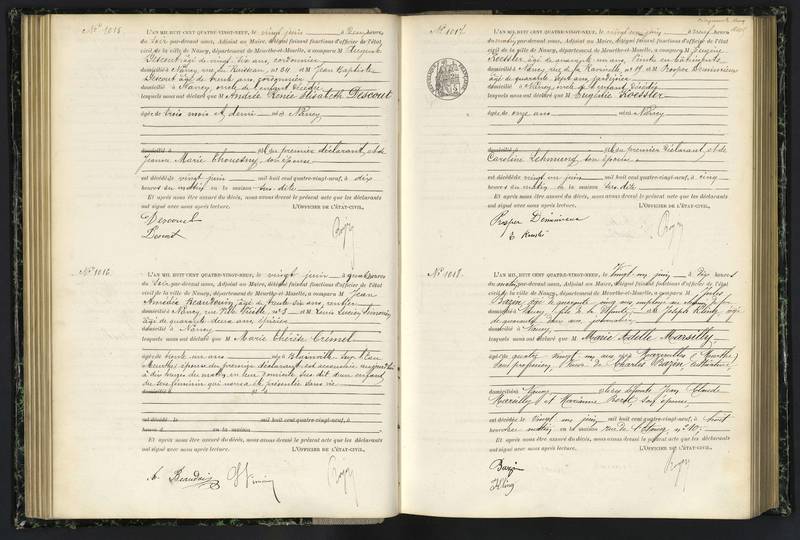 N° 1015
L'AN MIL HUIT CENT QUATRE-VINGT-NEUF, le vingt juin à heures
du soir par-devant nous, Adjoint au Maire, délégué faisant fonctions d'officier de l'état
civil de la ville de Nancy, département de Meurthe-et-Moselle, a comparu M Auguste
Descout âgé de vingt six ans, cordonnier
domicilié à Nancy, rue du Ruisseau, n° 24 & M Jean Baptiste
Descout âgé de trente ans, cordonnier
domicilié à Nancy, oncle de l'enfant décédée
lesquels nous ont déclaré que M Andrée Renée Elisabeth Descout
âgée de trois mois et demi née à Nancy
domicilié à fille du premier déclarant, et de
Jeanne Marie son épouse
est décédée le vingt juin mil huit cent quatre-vingt-neuf, à dix
heures du matin en la maison sus dite
Et après nous être assuré du décès, nous avons dressé le présent acte que les déclarants
ont signé avec nous après lecture. L'OFFICIER DE L'ÉTAT-CIVIL,
Descout
Descout
N° 1016
L'AN MIL HUIT CENT QUATRE-VINGT-NEUF, le vingt juin à quatre heures
du soir, par-devant nous, Adjoint au Maire, délégué faisant fonctions d'officier de l'état
civil de la ville de Nancy, département de Meurthe-et-Moselle, a comparu M Jean
Amédée Beaudouin, âgé de trente six ans, rentier
domicilié à Nancy, rue Ville Vieille n° 3 & M Louis Lucien
âgé de quarante deux ans, épicier
domicilié à Nancy
lesquels nous ont déclaré que M Marie Thérèse Crémel
âgée de trente un ans née à Blainville sur l'Eau
Meurthe, épouse du premier déclarant, est accouchée aujourd'hui
à dix heures du matin, en leur domicile sus dit d'un enfant
du sexe féminin qui nous a été présentée sans vie
domicilié à fil de
est décédé le mil huit cent quatre-vingt-neuf, à
heure d en la maison
Et après nous être assuré du décès, nous avons dressé le présent acte que les déclarants
ont signé avec nous après lecture. L'OFFICIER DE L'ÉTAT-CIVIL,
N° 1017
L'AN MIL HUIT CENT QUATRE-VINGT-NEUF, le vingt un juin à neuf heures
du matin, par-devant nous, Adjoint au Maire, délégué faisant fonctions d'officier de l'état
civil de la ville de Nancy, département de Meurthe-et-Moselle, a comparu M Eugène
Koessler, âgé de quarante un ans, Peintre en bâtiments
domicilié à Nancy, rue de la Ravinelle, n° 19 & M Prosper Deminieux
âgé de quarante sept ans, jardinier
domicilié à Nancy, oncle de l'enfant décédée
lesquels nous ont déclaré que M Eugénie Koessler
âgée de onze ans née à Nancy
domicilié à fille du premier déclarant, et de
Caroline Lehmung, son épouse
est décédée le vingt un juin mil huit cent quatre-vingt-neuf, à cinq
heures du matin en la maison sus dite
Et après nous être assuré du décès, nous avons dressé le présent acte que les déclarants
ont signé avec nous après lecture. L'OFFICIER DE L'ÉTAT-CIVIL,
Prosper Deminieux
N° 1018
L'AN MIL HUIT CENT QUATRE-VINGT-NEUF, le Vingt un juin à dix heures
du matin, par-devant nous, Adjoint au Maire, délégué faisant fonctions d'officier de l'état
civil de la ville de Nancy, département de Meurthe-et-Moselle, a comparu M Jules
Bazin, âgé de quarante cinq ans, employé au chemin de fer
domicilié à Nancy, fils de la défunte, & M Joseph Kling, âgé
de quarante ans, journalier
domicilié à Nancy
lesquels nous ont déclaré que Marie Adelle Marsilly,
âgée de quatre vingt un ans née (Meurthe)
sans profession, veuve de Charles Bazin
domiciliée à Nancy fille des défunts Jean Claude
Marsilly et Marianne son épouse
est décédée le vingt un juin mil huit cent quatre-vingt-neuf, à
heures du matin en la maison rue de l'Etang, n° 10
Et après nous être assuré du décès, nous avons dressé le présent acte que les déclarants
ont signé avec nous après lecture. L'OFFICIER DE L'ÉTAT-CIVIL,
Bazin
Kling